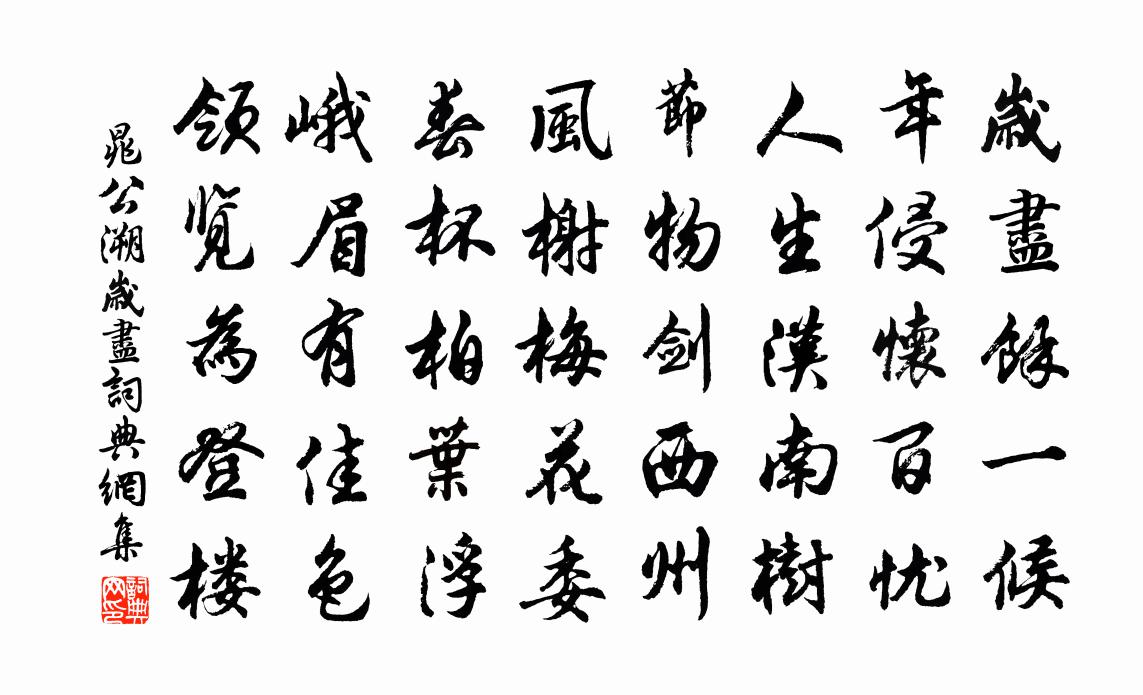 歲盡餘一候
年侵懷百忧
人生漢南樹
節物剑西州
風榭梅花委
春杯柏葉浮
峨眉有佳色
領覧為登楼
晁公溯歲盡詞典網集
詞典网印